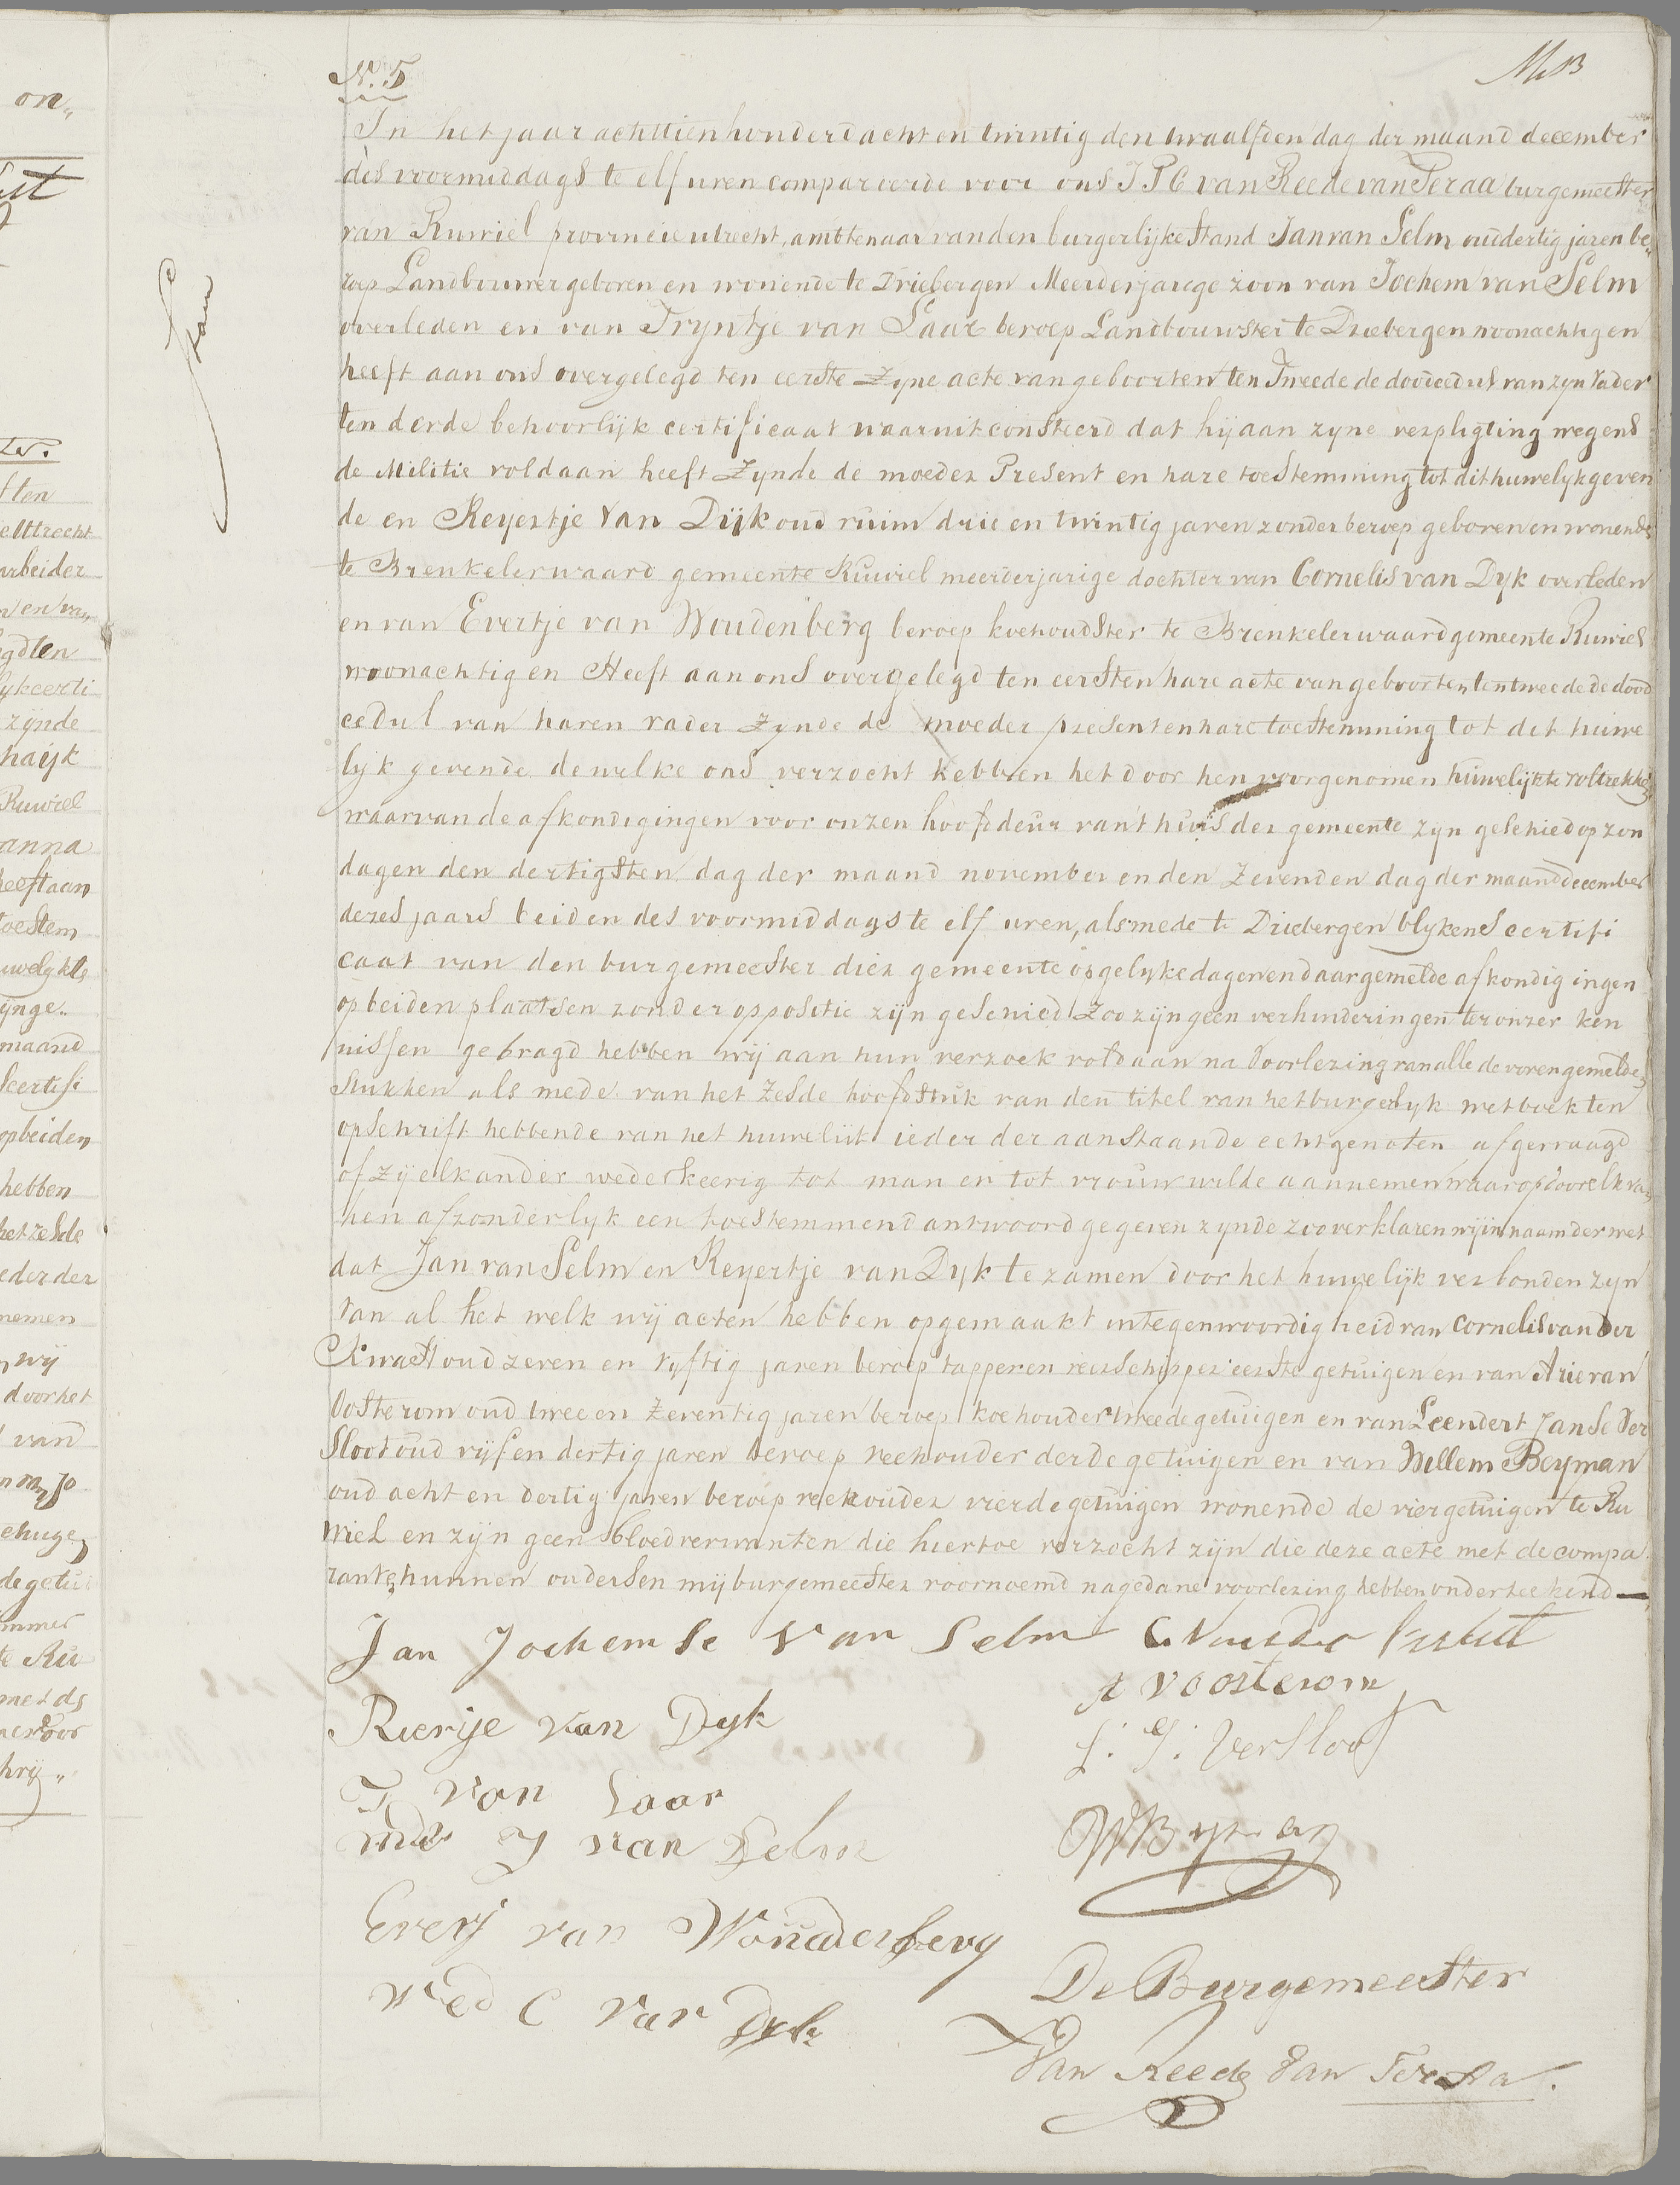 N. 5
In het jaar achttien honderd acht en twintig den twaalfden dag der maand december
des voormiddags te elf uren compareerde voor ons J P C van Reede van Teraa burgemeester
van Ruwiel provincie utrecht, ambtenaar van den burgerlijke Stand Jan van Selm oud dertig jaren be„
roep Landbouwer geboren en wonende te Driebergen Meerderjarige zoon van Jochem van Selm
overleden en van Tryntje van Laar beroep Landbouwster te Driebergen woonachtig en
heeft aan ons overgelegd ten eerste Zyne acte van geboorten ten Tweede de doodcedul van zyn Vader
ten derde behoorlijk certificaat waaruit consteerd dat hij aan zyne verpligting wegens
de Militie voldaan heeft Zynde de moeder Present en hare toestemming tot dit huwelyk geven
de en Reyertje Van Dijk oud ruim drie en twintig jaren zonder beroep geboren en wonende
te Breukelerwaard gemeente Ruwiel meerderjarige dochter van Cornelis van Dyk overleden
en van Evertje van Woudenberg beroep koehoudster te Breukelerwaard gemeente Ruwiel
woonachtig en Heeft aan ons overgelegd ten eersten hare acte van geboorten, ten tweede de dood
cedul van haren vader Zynde de moeder present en hare toestemming tot dit huwe
lyk gevende dewelke ons verzocht hebben het door hen voorgenomen huwelijk te voltrekken
waarvan de afkondigingen voor onzen hoofddeur van't huis der gemeente zyn geschied op zon
dagen den dertigsten dag der maand november en den Zevenden dag der maand december
dezes jaars beiden des voormiddags te elf uren, alsmede te Driebergen blykens certifi
caat van den burgemeester dier gemeente op gelyke dagen en daargemelde afkondigingen
op beiden plaatsen zonder oppositie zijn geschied Zoo zijn geen verhinderingen ter onzer ken
nissen gebragd hebben wij aan hun verzoek voldaan na Voorlezing van alle de vorengemelde
Stukken als mede van het Zesde hoofdstuk van den titel van het burgerlyk wetboek ten
opschrift hebbende van het huwelijk ieder der aanstaande echtgenoten afgevraagd
of zij elkander wederkeerig tot man en tot vrouw wilde aannemen waarop door elk van
hen afzonderlyk een toestemmend antwoord gegeven zynde zoo verklaren wij in naam der wet
dat Jan van Selm en Reyertje van Dyk te zamen door het huwelijk verbonden zyn
Van al het welk wij acten hebben opgemaakt in tegenwoordigheid van Cornelis van der
Kwast oud zeven en vyftig jaren beroep tapper en veerschipper eerste getuigen en van Arie van
Oosterom oud twee en Zeventig jaren beroep koehouder tweede getuigen en van Leendert Janse Ver
Sloot oud vijf en dertig jaren beroep veehouder derde getuigen en van Willem Beyman
oud acht en dertig jaren beroep veehouder vierde getuigen wonende de vier getuigen te Ru
wiel en zijn geen bloedverwanten die hiertoe verzocht zijn die deze acte met de compa
ranten hunnen ouders en mij burgemeester voornoemd na gedane voorlezing hebben onderteekend —
Jan Jochemse van Selm
A V Oosterom
Rierije van Dyk
L. J. VerSloot
T van Laar
wde J van Selm
Everj van Wouderberg
De Burgemeester
Wed C van Dyk
Van Reede Van TerAa.